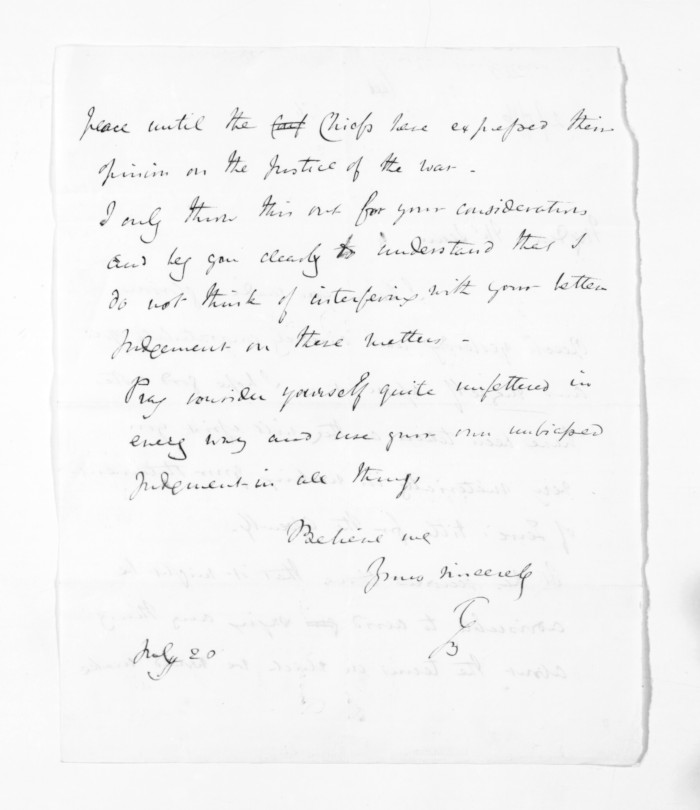 peace until the Chiefs have expressed their
opinion on the Justice of the war -
I only throw this out for your consideration
and beg you clearly to understand that I
do not think of interfering with your better
Judgement on these matters -
Pray consider yourself quite unfettered in
every way and use your own unbiassed
Judgment in all things
Believe me
Yours sincerely
July 20